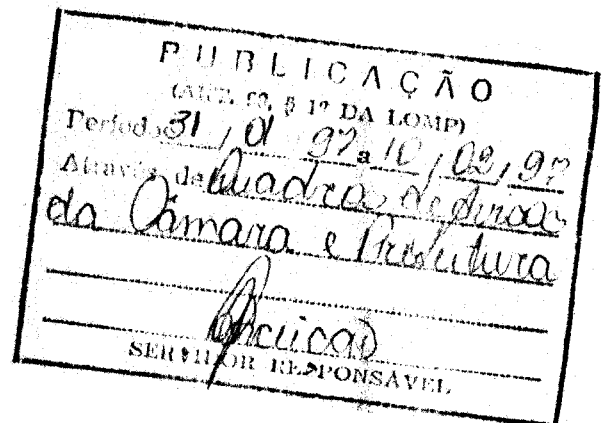 PUBLICAÇÃO
(ART. 99, § 1º DA LOMP)
Período 31 / 01 97 a 10 / 02 / 97
Através de Quadros de Avisos
da Câmara e Prefeitura
SERVIDOR RESPONSÁVEL